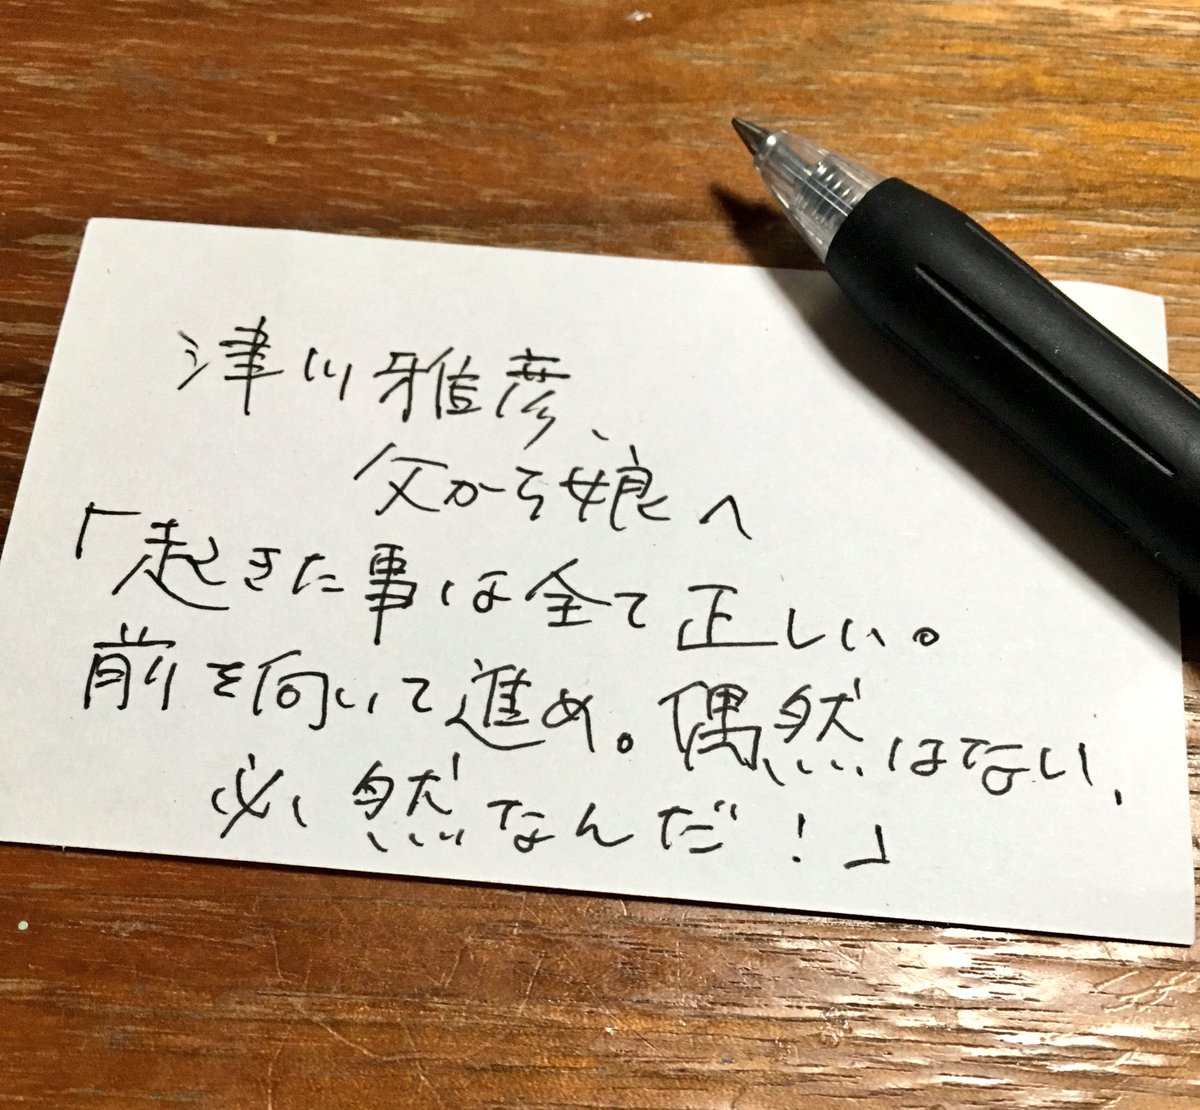 津川雅彦、
父から娘へ
「起きた事は全て正しい。
前を向いて進め。偶然はない、
必然なんだ!」